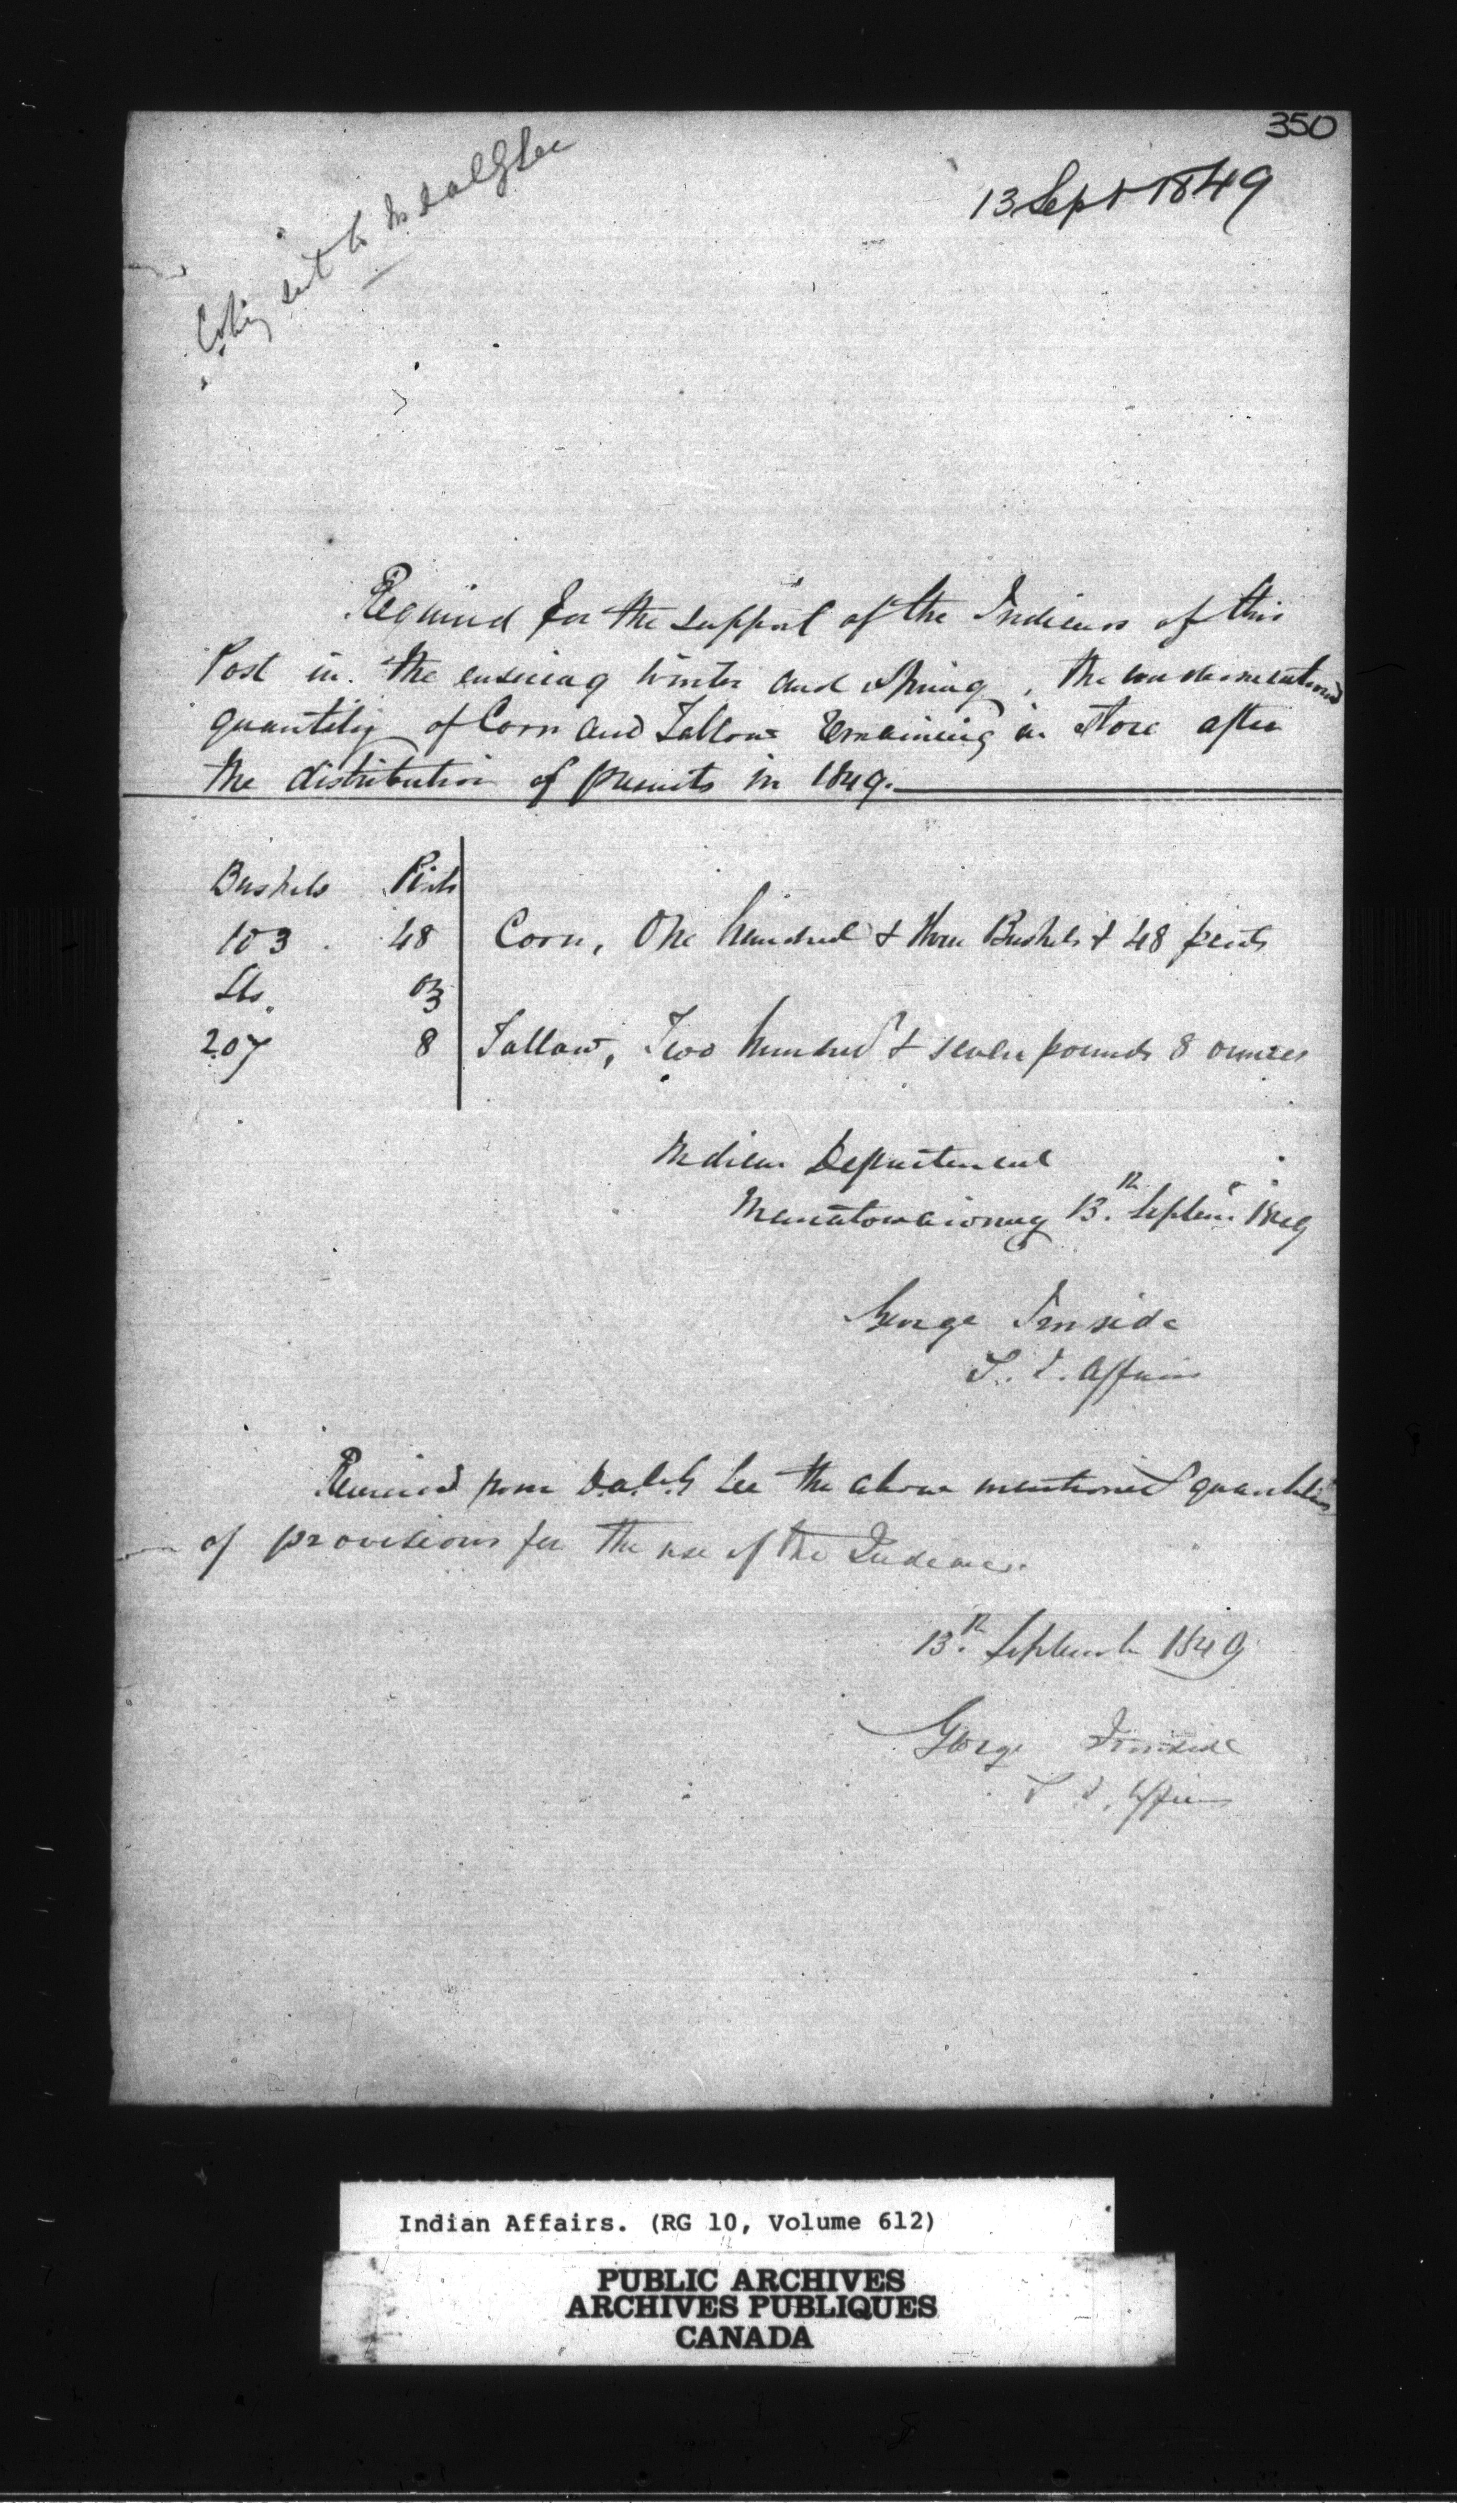 350
13 Sept 1849
Copy sent to Mr D a C G Lee
Required for the support of the Indians of this
Post in the ensuing Winter and Spring, the undermentioned
quantity of Corn and Tallow remaining in Store after
the distribution of presents in 1849.
Bushels Pints
103 . 48 Corn, One hundred & three Bushels & 48 pints
Lbs. oz
207 8 Tallow, Two hundred & seven pounds 8 ounces
Indian Department
Manatowaning 13th Septem. 1849
George Ironside
S. I. Affairs
Received from D.a.C.G Lee the above mentioned quantities
of provisions for the use of the Indians.
13th September 1849
George Ironside
S I. Affairs
Indian Affairs. (RG 10, Volume 612)
PUBLIC ARCHIVES
ARCHIVES PUBLIQUES
CANADA